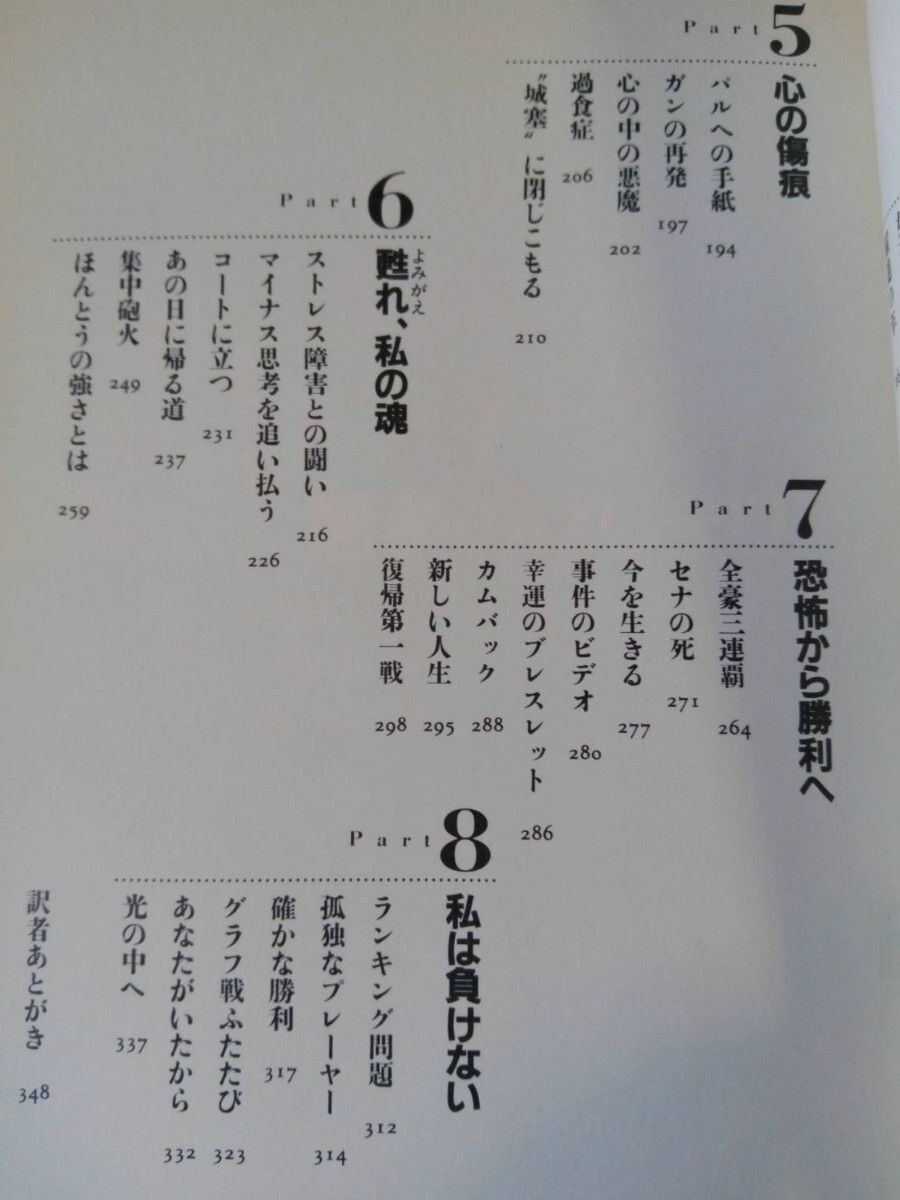 Part 5
心の傷痕
パルへの手紙 194
ガンの再発 197
心の中の悪魔 202
過食症 206
〝城塞〟に閉じこもる 210
Part 6
甦れ、私の魂
よみがえ
ストレス障害との闘い 216
マイナス思考を追い払う 226
コートに立つ 231
あの日に帰る道 237
集中砲火 249
ほんとうの強さとは 259
Part 7
恐怖から勝利へ
全豪三連覇 264
セナの死 271
今を生きる 277
事件のビデオ 280
幸運のブレスレット 286
カムバック 288
新しい人生 295
復帰第一戦 298
Part 8
私は負けない
ランキング問題 312
孤独なプレーヤー 314
確かな勝利 317
グラフ戦ふたたび 323
あなたがいたから 332
光の中へ 337
訳者あとがき 348